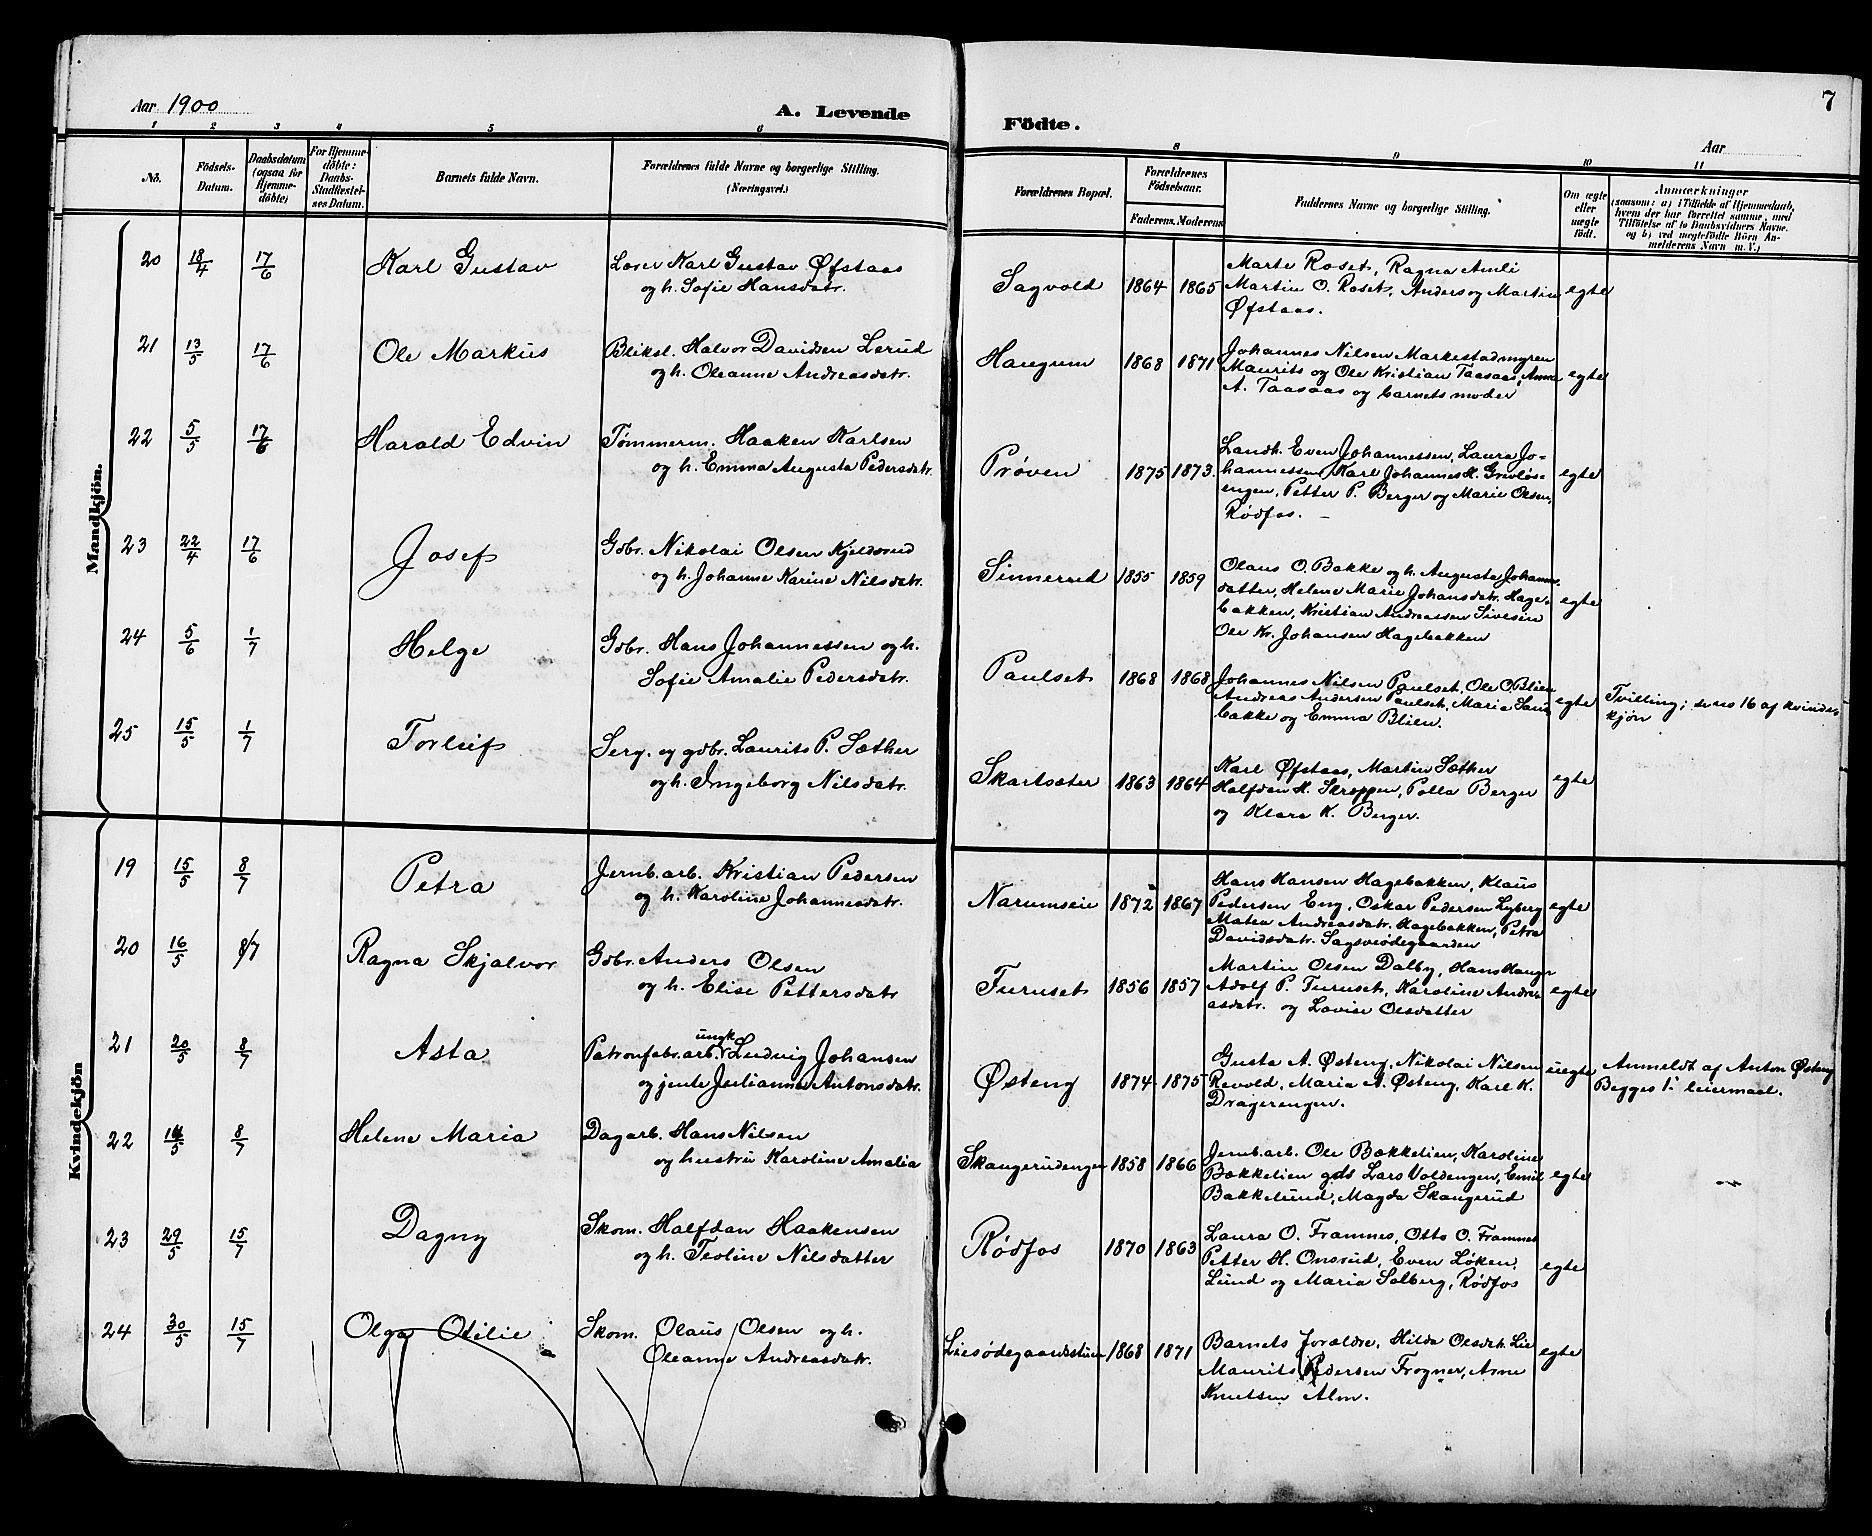 Aar 1900
A. Levende
Födte.
Aar
7
1 2 3 4 5 6
8 9 10 11
No.
Födsels-
Datum.
Daabsdatum
(ogsaa for
Hjemme-
döbte)
For Hjemme-
döbte:
Daabs-
Stadfæstel-
ses Datum.
Barnets fulde Navn.
Forældrenes fulde Navne og borgerlige Stilling.
(Næringsvei.)
Forældrenes Bopæl.
Forældrenes
Födselsaar.
Faderens. Moderens.
Faddernes Navne og borgerlige Stilling.
Om ægte
eller
uægte
födt.
Anmærkninger
(saasom: a) i Tilfælde af Hjemmedaab,
hvem der har forrettet samme, med
Tilföielse af to Daabsvidners Navne.
og b) ved uægtefödte Börn An-
melderens Navn m. V.)
Mandkjön.
20 18/4 17/6 Karl Gustav Lærer Karl Gustav Øfstaas
og h. Sofie Hansdatr.
Sagvold 1864 1865 Marte Roset, Ragna Amli
Martin O. Roset, Anders og Martin
Øfstaas.
egte
21 13/5 17/6 Ole Markus Bliksl. Halvor Davidsen Lerud
og h. Oleanne Andreasdatr.
Haugum 1868 1871 Johannes Nilsen Markestadmyren
Maurits og Ole Kristian Taasaas, Anna
A. Taasaas og barnets moder
egte
22 5/5 17/6 Harald Edvin Tømmerm. Haaken Karlsen
og h. Emma Augusta Pedersdatr.
Prøven 1875 1873. Landh. Even Johannessen, Laura Jo-
hannessen, Karl Johannes H.
engen, Petter P. Berger og Marie Olsen,
Rødfos.
egte
23 22/4 17/6 Josef Gdbr. Nikolai Olsen Kjeldsrud
og h. Johanne Karine Nilsdatr.
Sinnerud 1855 1859 Olaus O. Bakke og h. Augusta Johanns-
datter, Helene Marie Johansdatr. Hage-
bakken, Kristian Andreassen Sivesin
Ole Kr. Johansen Hagebakken
egte
24 5/6 1/7 Helge Gdbr. Hans Johannessen og h.
Sofie Amalie Pedersdatr.
Paulset 1868 1868 Johannes Nilsen Paulset, Ole O. Blien
Andreas Andersen Paulset, Maria Sand-
bakke og Emma Blien.
egte Tvilling; se no 16 af kvinde-
kjøn
25 15/5 1/7 Torleif Serg. og gdbr. Laurits P. Sæther
og h. Ingeborg Nilsdatr.
Skartsæter 1863 1864 Karl Øfstaas, Martin Sæther
Halfdan H. Skroppen, Polla Berger
og Klara K. Berger.
egte
Kvindekjön
19 15/5 8/7 Petra Jernb.arb. Kristian Pedersen
og h. Karoline Johannesdatr.
Narumseie 1872 1867 Hans Hansen Hagebakken, Klaus
Pedersen Eng, Oskar Pedersen Lyberg
Matea Andreasdatr. Hagebakken, Petra
Davidsdatr. Sagsveødegaarden
egte
20 16/5 8/7 Ragna Skjalvor Gdbr. Anders Olsen
og h. Elise Pettersdatr
Furuset 1856 1857 Martin Olsen Dalby, Hans Haugn
Adolf P. Furuset, Karoline Andre-
asdatr. og Lovise Olsdatter
egte
21 20/5 8/7 Asta Patronfabr.arb. ungk. Ludvig Johansen
og jente Julianne Antonsdatr.
Østeng 1874 1875 Gusta A. Østeng, Nikolai Nilsen
Revold, Maria A. Østeng, Karl K.
Dragerengen.
uegte Anmeldt af Anton Østeng
Begges 1ˢ leiermaal.
22 14/5 8/7 Helene Maria Dagarb. Hans Nilsen
og hustru Karoline Amalia
Skangerudengen 1858 1866 Jernb.arb. Ole Bækkelien, Karoline
Bækkelien gds Lars Voldengen, Emil
Bakkelund, Magda Skangerud
egte
23 29/5 15/7 Dagny Skom. Halfdan Haakensen
og h. Teoline Nilsdatter
Rødfos 1870 1863 Laura O. Framnes, Otto O. Framnes
Petter H. Onsrud, Even Løken,
Lund og Maria Solberg, Rødfos
egte
24 30/5 15/7 Olga Otilie Skom. Olaus Olsen og h.
Oleanne Andreasdatr.
Liesødegaardsstuen 1868 1871 Barnets forældre, Hilda Olsdtr. Lie
Maurits Pedersen Frogner, Arne
Knutsen Alm.
egte